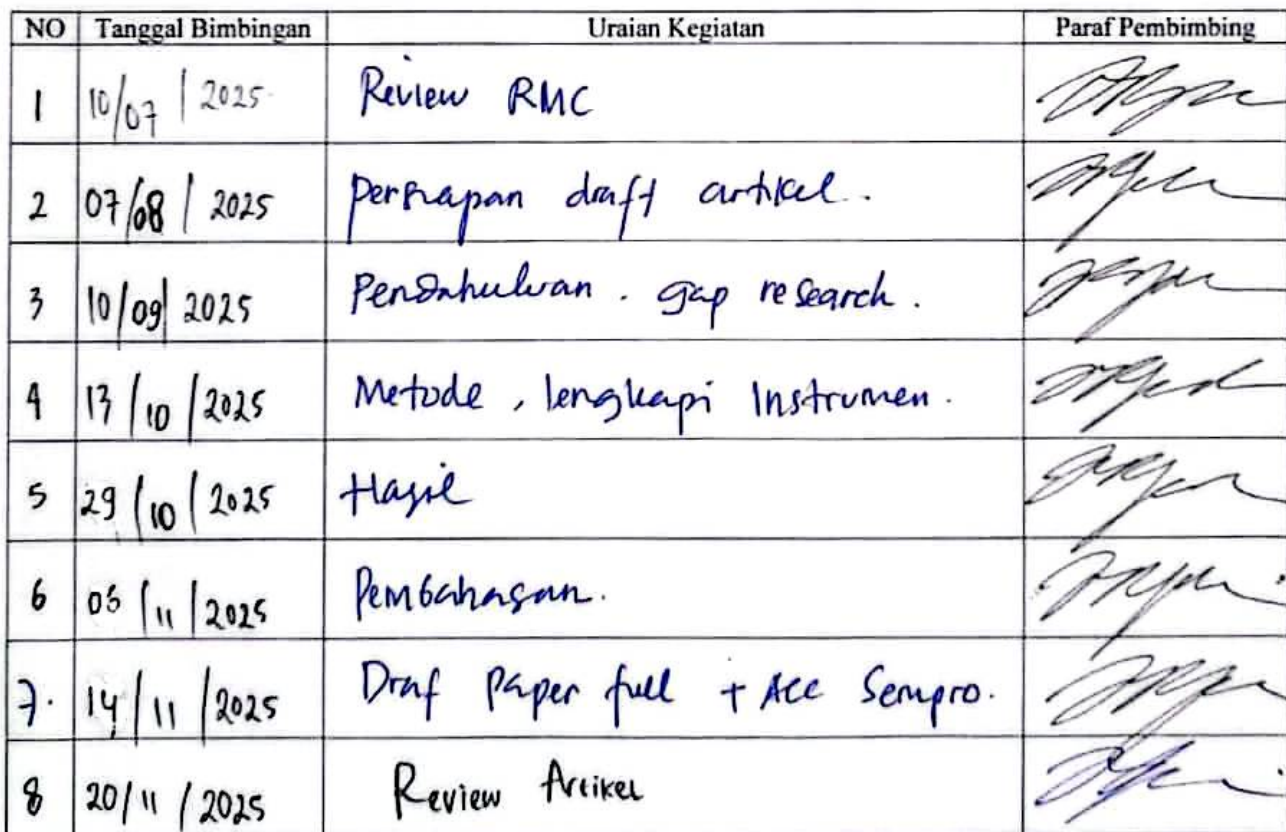 NO Tanggal Bimbingan Uraian Kegiatan Paraf Pembimbing
1 10/07/2025 Review RMC
2 07/08/2025 Persiapan draft artikel.
3 10/09/2025 Pendahuluan. gap research.
4 13/10/2025 Metode, lengkapi Instrumen.
5 29/10/2025 Hasil
6 05/11/2025 Pembahasan.
7. 14/11/2025 Draf paper full + Acc Sempro.
8 20/11/2025 Review Artikel